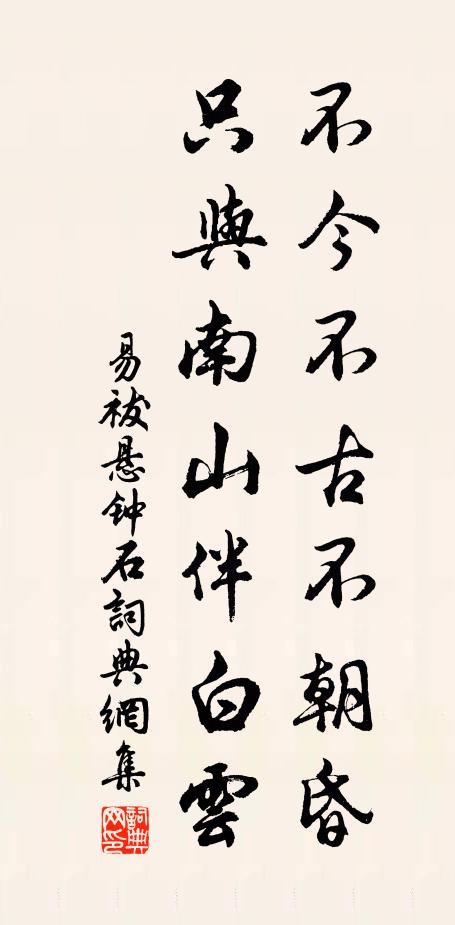 不今不古不朝昏
只與南山伴白雲
易祓悬钟石詞典網集
詞典網印